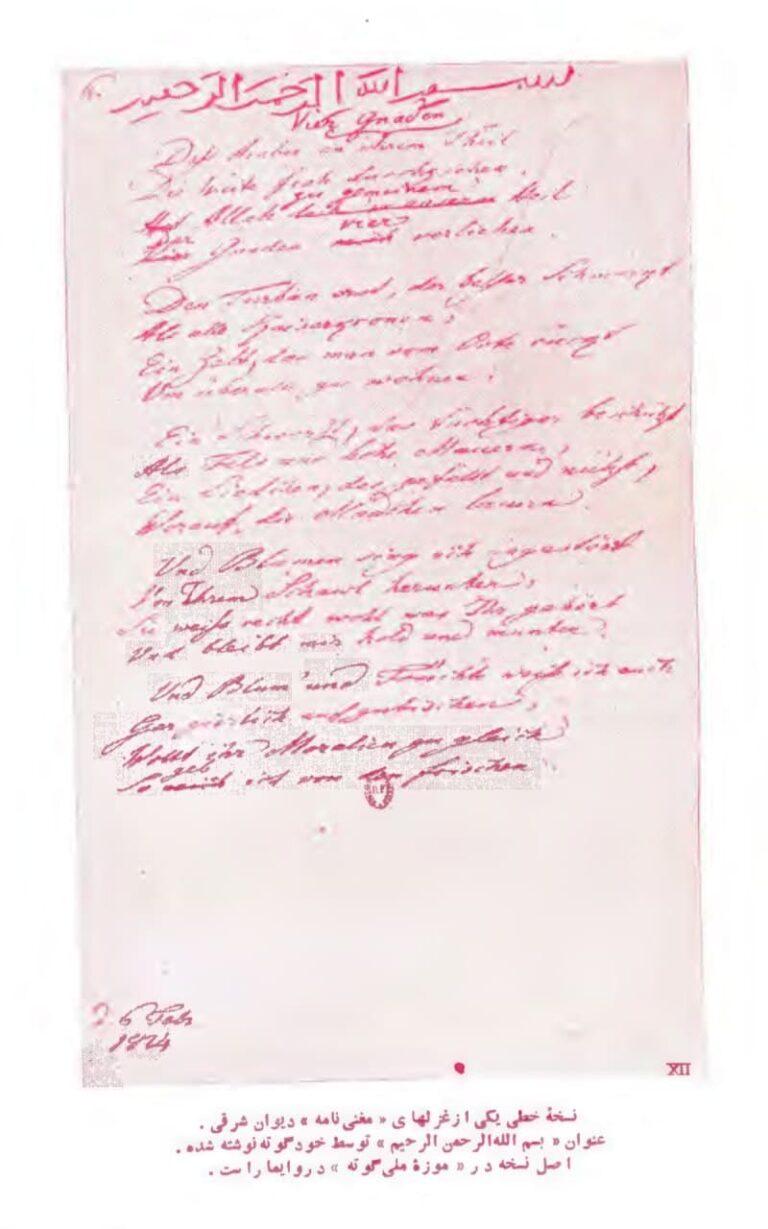 بسم الله الرحمن الرحيم
Vier Gnaden
Daß Araber an ihrem Theil
Die Weite froh durchziehen,
zu gemeinem
Hat Allah Heil
Der vier
Gnaden verliehen.
Den Turban erst, der besser schmückt
Als alle Kaisercronen;
Ein Zelt, das man vom Orte rückt
Um überall zu wohnen;
Ein Schwerdt, das tüchtiger beschützt
Als Fels und hohe Mauern;
Ein Liedchen, das gefällt und nützt,
Worauf die Mädchen lauern.
Und Blumen sing ich ungestört
Von Ihrem Schawl herunter,
Sie weiß recht wohl was Ihr gehört
Und bleibt mir hold und munter.
Und Blum' und Früchte weiß ich euch
Gar zierlich aufzutischen,
Wollt ihr Moralien zugleich
geb
So ich von den frischen.
6 Febr
XII
نسخهٔ خطی یکی از غزلهای «مغنی‌نامه» دیوان شرقی .
عنوان «بسم الله الرحمن الرحیم» توسط خود گوته نوشته شده .
اصل نسخه در «موزهٔ ملی گوته» در وایمار است .